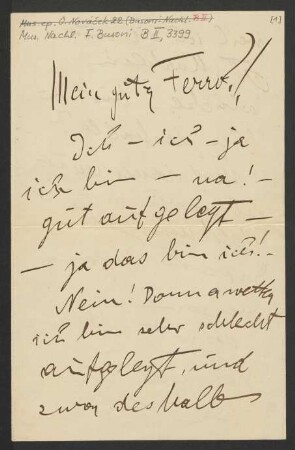 Mus. ep. O. Novácek 22 (Busoni-Nachl. B II)
Mus. Nachl. F. Busoni B II, 3399
[1]
Mein guter Ferro!
Ich – ich – ja
ich bin – na! –
gut aufgelegt –
– ja das bin ich! –
Nein! Donnawetta
ich bin sehr schlecht
aufgelegt, und
zwar deshalb